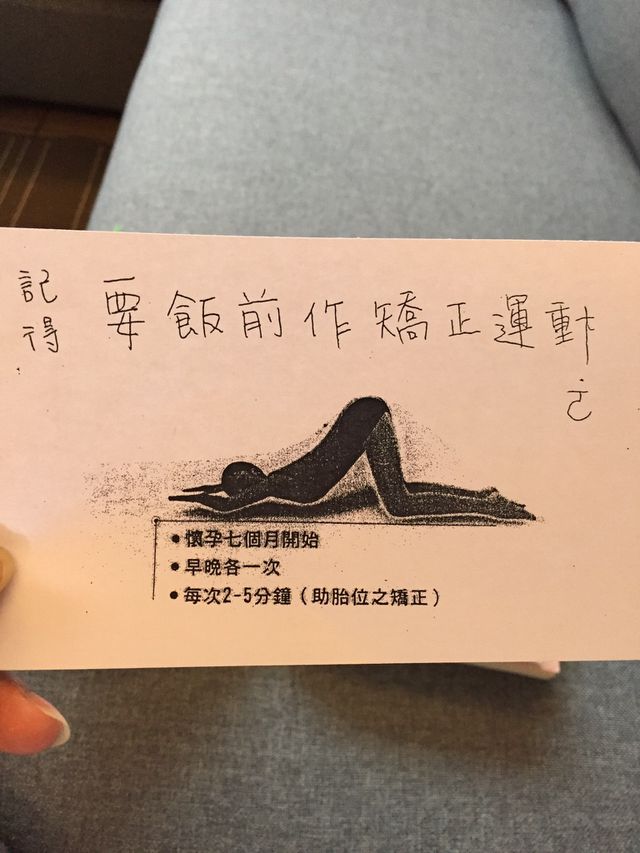 記得 要飯前作矯正運動
• 懷孕七個月開始
• 早晚各一次
• 每次2-5分鐘（助胎位之矯正）